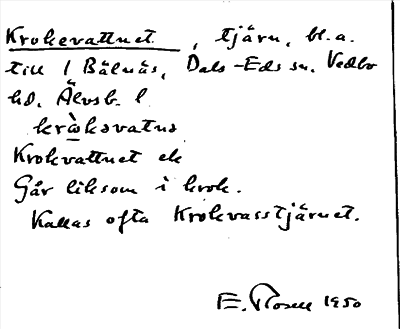 Krokevattnet, tjärn, bl.a.
till 1 Bälnäs, Dals-Eds sn. Vedbo
hd. Älvsb. l
Krokvattnet ek
Går liksom i krok.
Kallas ofta Krokvasstjärnet.
E. Rosell 1950